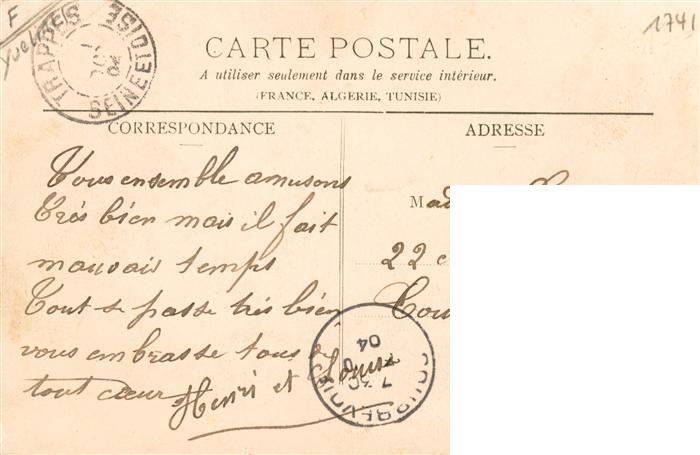 F
Yvelines
1741
TRAPPES
SEINE ET OISE
04
CARTE POSTALE.
A utiliser seulement dans le service intérieur.
(FRANCE, ALGERIE, TUNISIE)
CORRESPONDANCE
Tous ensemble amusons
très bien mais il fait
mauvais temps
Tout se passe très bien
vous embrasse tous de
tout cœur Henri et Louise
ADRESSE
Mad
22
Cou
COURBEVOIE
7
04